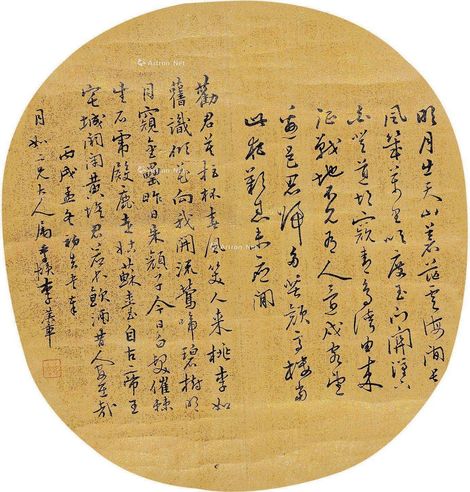 明月出天山蒼茫雲海間長
風幾萬里吹度玉門關漢下
白登道胡窺青海灣由來
征戰地不見有人還戍客望
邊邑思歸多苦顏高樓當
此夜歎息未應閒
勸君莫拒杯春風笑人來桃李如
舊識傾花向我開流鶯啼碧樹明
月窺金罍昨日朱顏子今日白髮催棘
生石虎殿鹿走姑蘇臺自古帝王
宅城闕閉黃埃君若不飲酒昔人安在哉
丙戌孟冬初吉書奉
月如二兄大人屬
Artron.Net
Artron.Net
Artron.Net